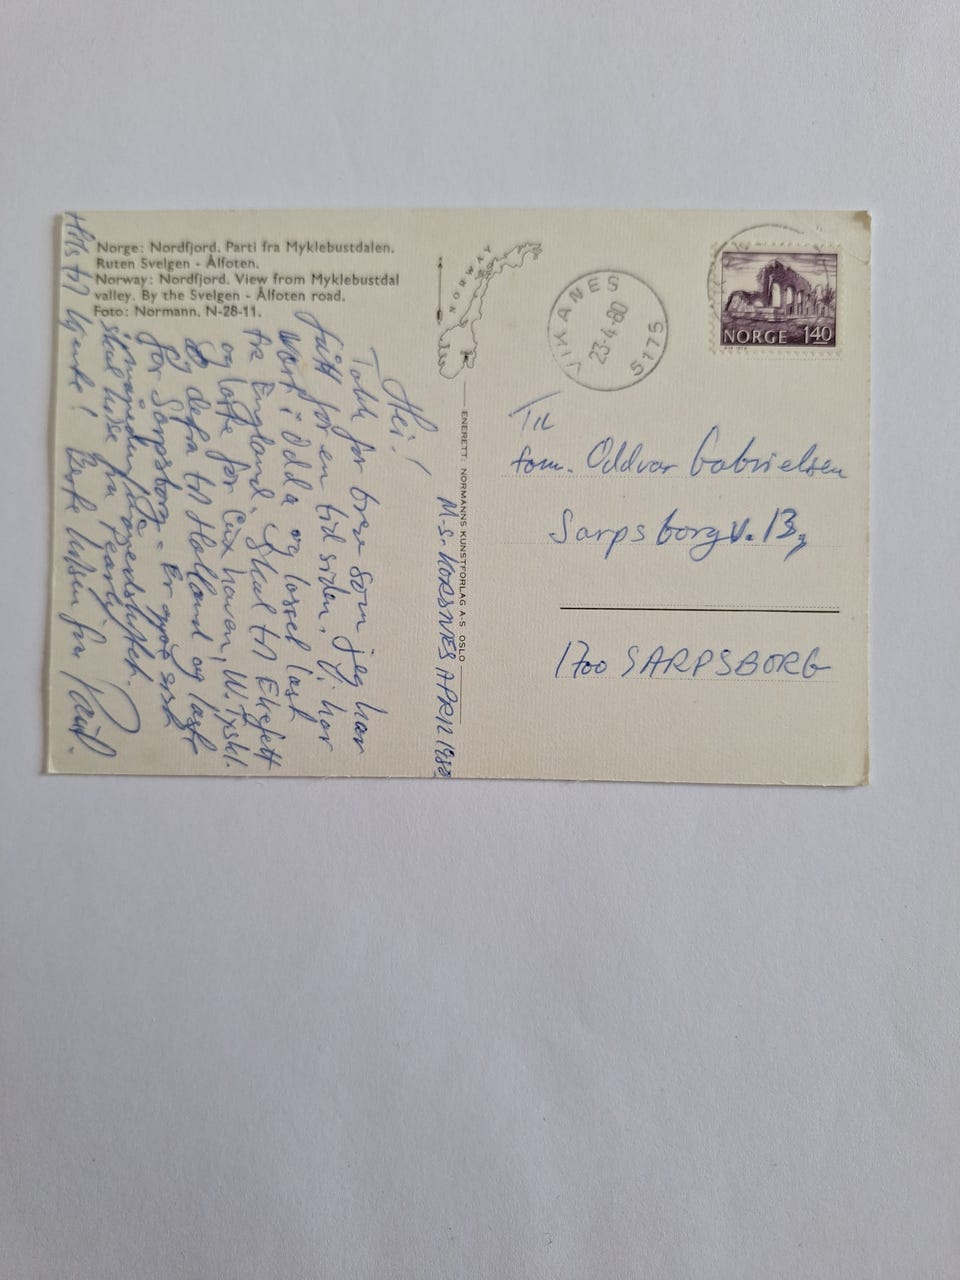 Norge: Nordfjord. Parti fra Myklebustdalen.
Ruten Svelgen - Ålfoten.
Norway: Nordfjord. View from Myklebustdal
valley. By the Svelgen - Ålfoten road.
Foto: Normann. N-28-11.
M-S. KORSNES APRIL 1980
Hei!
Takk for brev som jeg har
fått for en tid siden. Vi har
vært i Odda og losset last
fra England. Skal til
og laste for Cuxhaven, W. Tyskl.
og derfra til Holland og laste
for Sarpsborg. Er også
i
skal hilse fra
Hils til Bente! Beste hilsen fra
ENERETT: NORMANNS KUNSTFORLAG A-S OSLO
NORWAY
VIKANES
23-4-80
5175
NORGE 140
Til
fam. Oddvar Gabrielsen
Sarpsborgv. 13,
1700 SARPSBORG